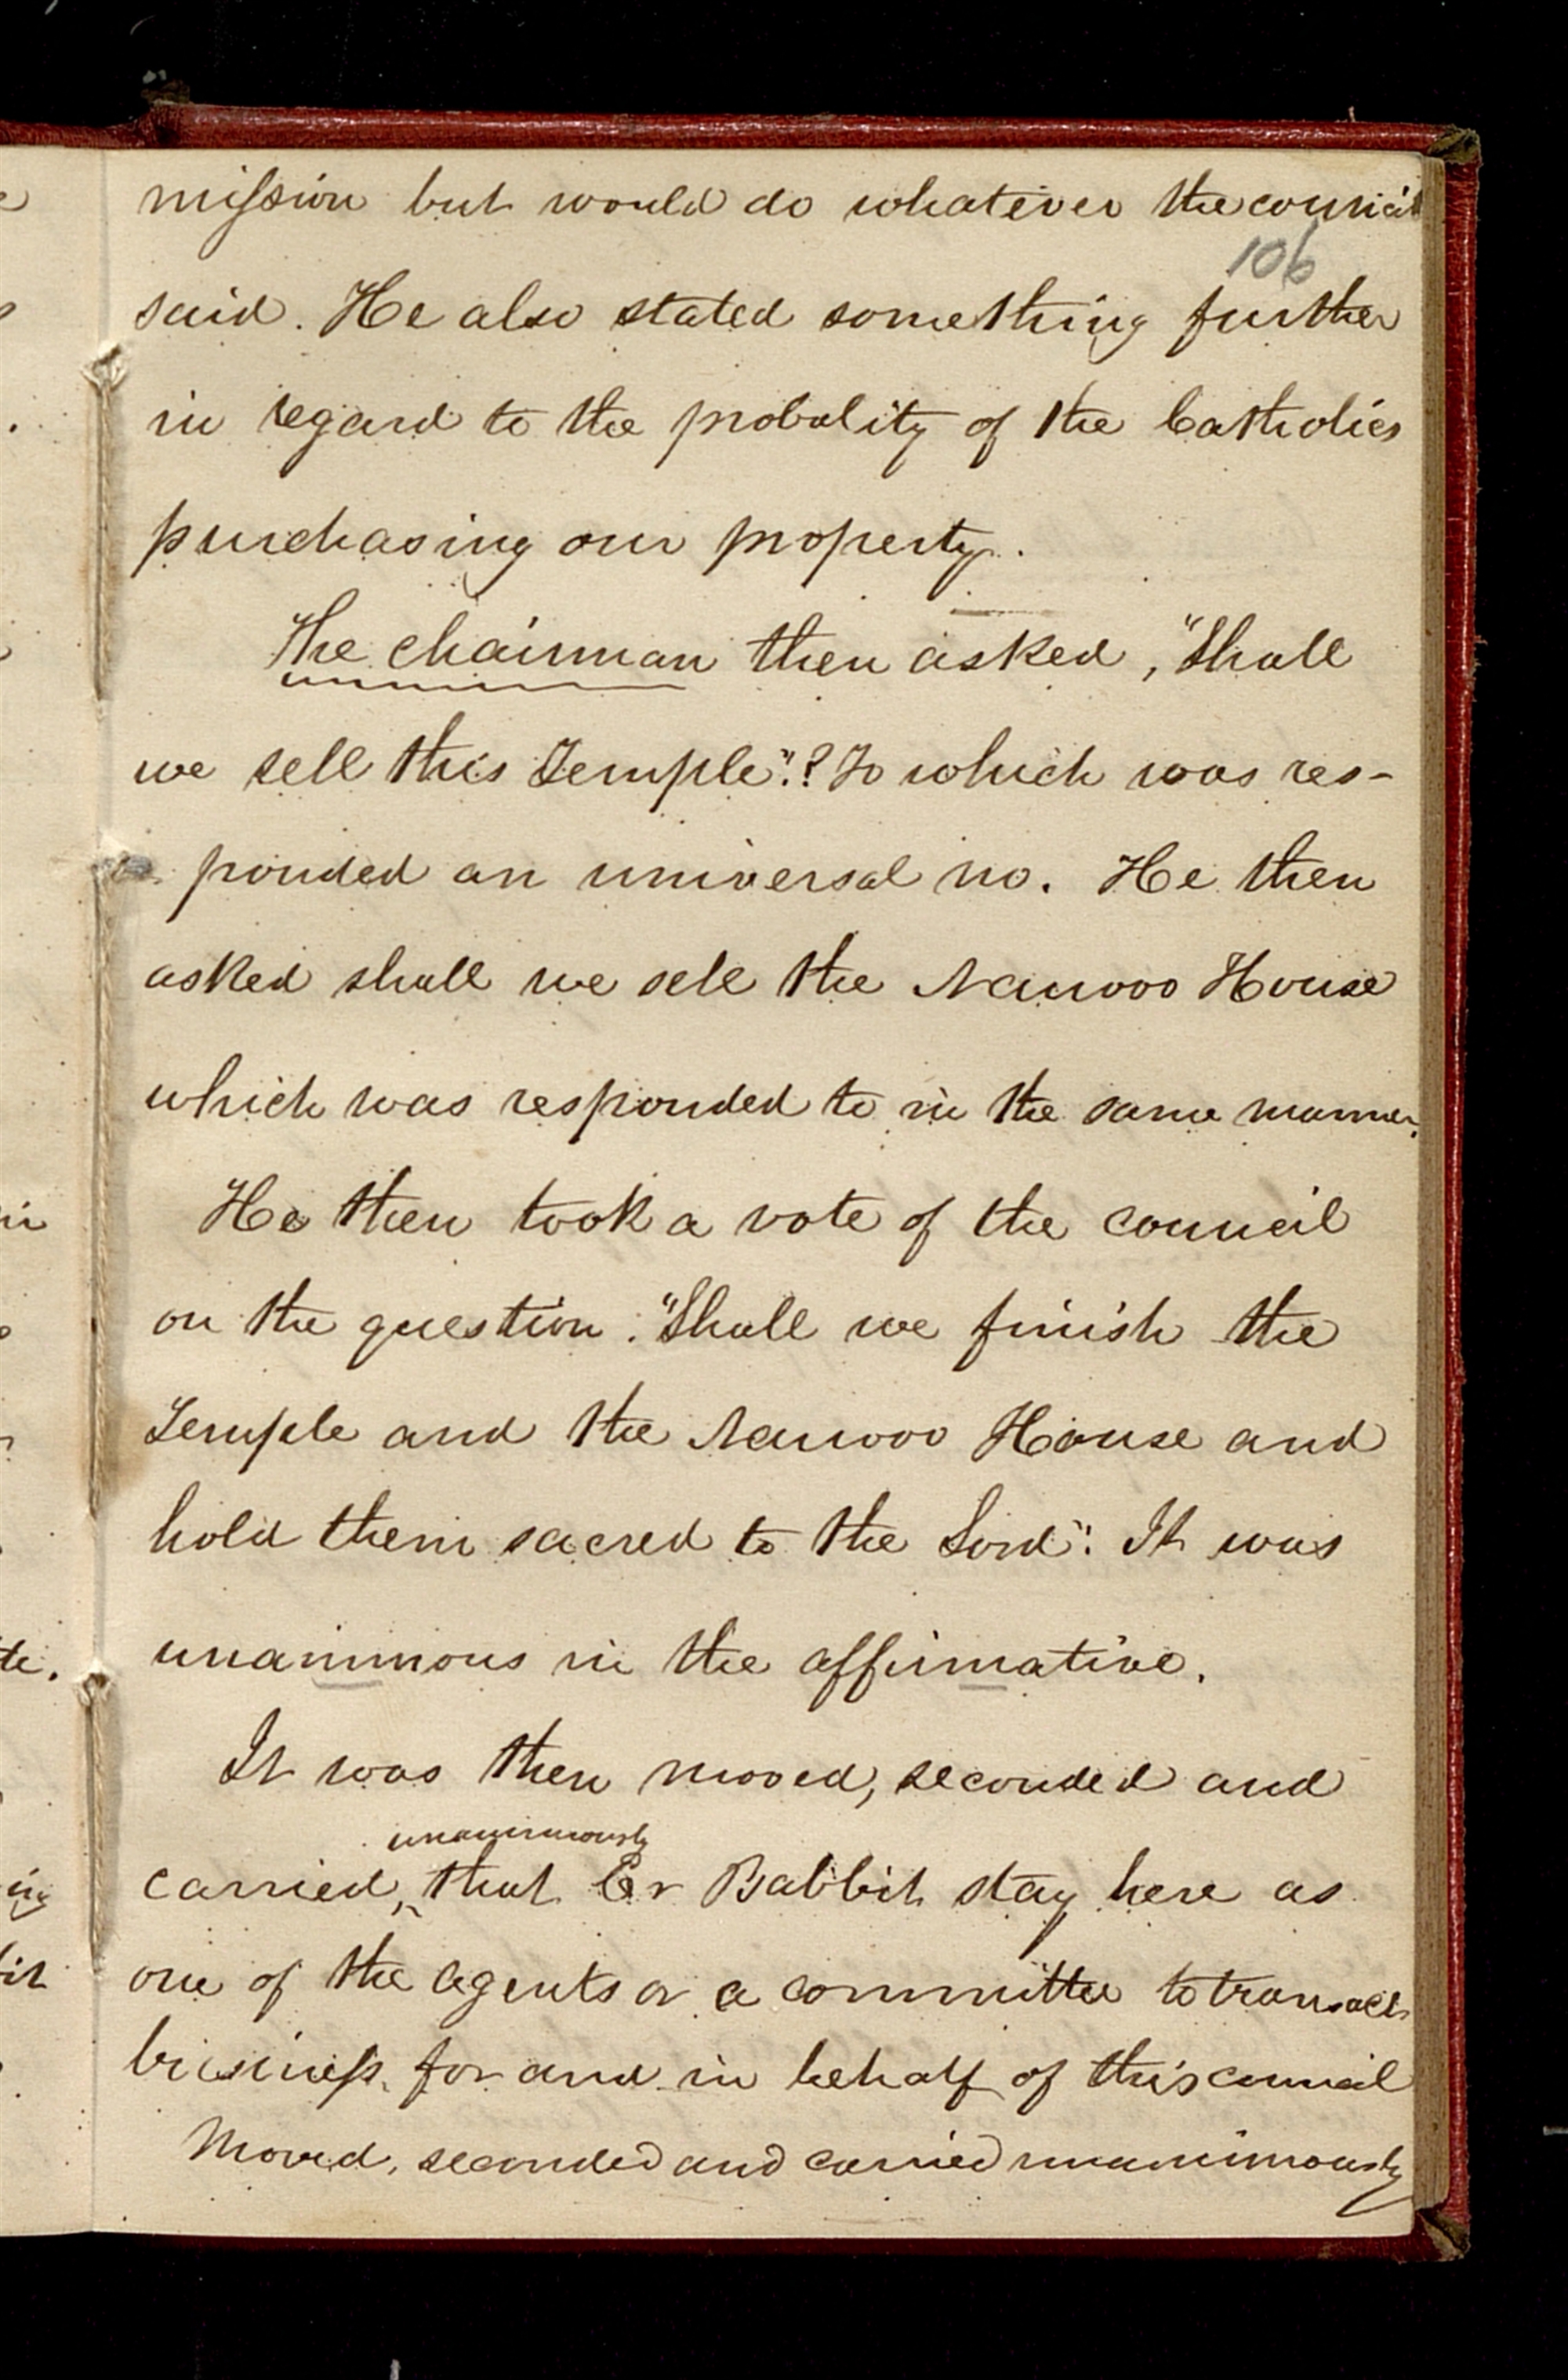 mission but would do whatever the council
106
said. He also stated something further
in regard to the probality of the Catholics
purchasing our property.
The chairman then asked, "Shall
we sell this Temple"? To which was res-
ponded an universal no. He then
asked shall we sell the Nauvoo House
which was responded to in the same manner.
He then took a vote of the council
on the question. "Shall we finish the
Temple and the Nauvoo House and
hold them sacred to the Lord". It was
unanimous in the affirmative.
It was then moved, seconded and
unanimously
carried, that Er Babbit stay here as
one of the agents or a committee to transact
business for and in behalf of this council
Moved, seconded and carried unanimously